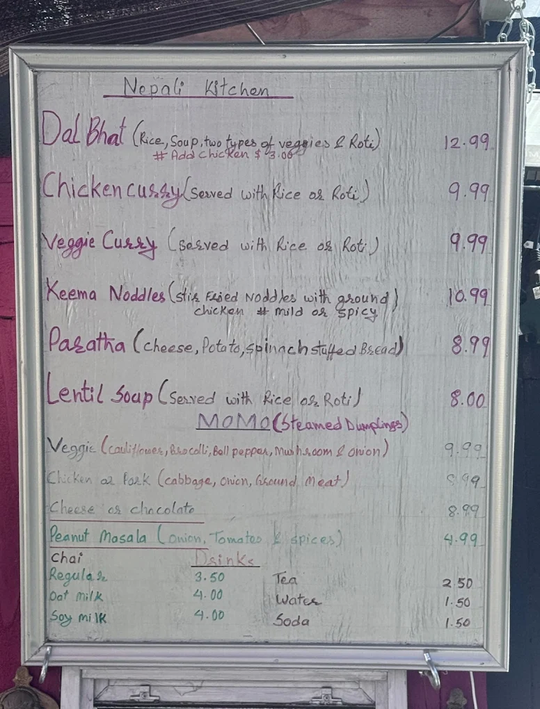 Nepali Kitchen
Dal Bhat (Rice, Soup, two types of veggies & Roti) 12.99
# Add chicken $ 3.00
Chicken curry (Served with Rice or Roti) 9.99
Veggie Curry (served with Rice or Roti) 9.99
Keema Noddles (stir fried Noddles with ground) 10.99
chicken # mild or spicy
Paratha (cheese, Potato, spinach stuffed Bread) 8.99
Lentil Soup (Served with Rice or Roti) 8.00
MoMo (Steamed Dumplings)
Veggie (cauliflower, Brocolli, Bell pepper, Mushroom & onion) 9.99
Chicken or Pork (cabbage, Onion, Ground Meat) 9.99
Cheese or chocolate 8.99
Peanut Masala (onion, Tomatoe & spices) 4.99
Chai Drinks
Regular 3.50 Tea 2.50
Oat milk 4.00 Water 1.50
Soy milk 4.00 Soda 1.50